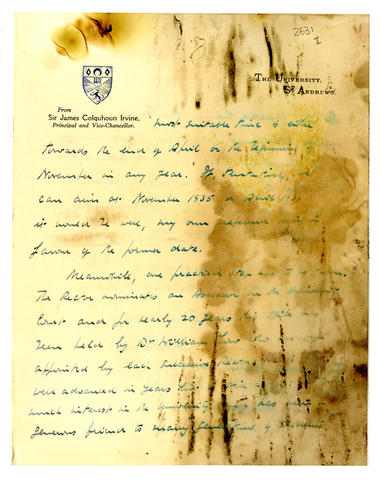 2531
I
THE UNIVERSITY,
ST ANDREWS.
From
Sir James Colquhoun Irvine,
Principal and Vice-Chancellor.
most suitable time is either
towards the end of April or the beginning of
November in any year. If, tentatively, we
can aim at November 1935 or April 193
it would be well, my own
favour of the former date.
Meanwhile, one practical step has to be taken.
The Rector nominates an Assessor on the University
Court and for nearly 20 years this office has
been held by Dr William
appointed by each successive Rector.
well advanced in years
much interest in the University has been
generous friend to many generations of students